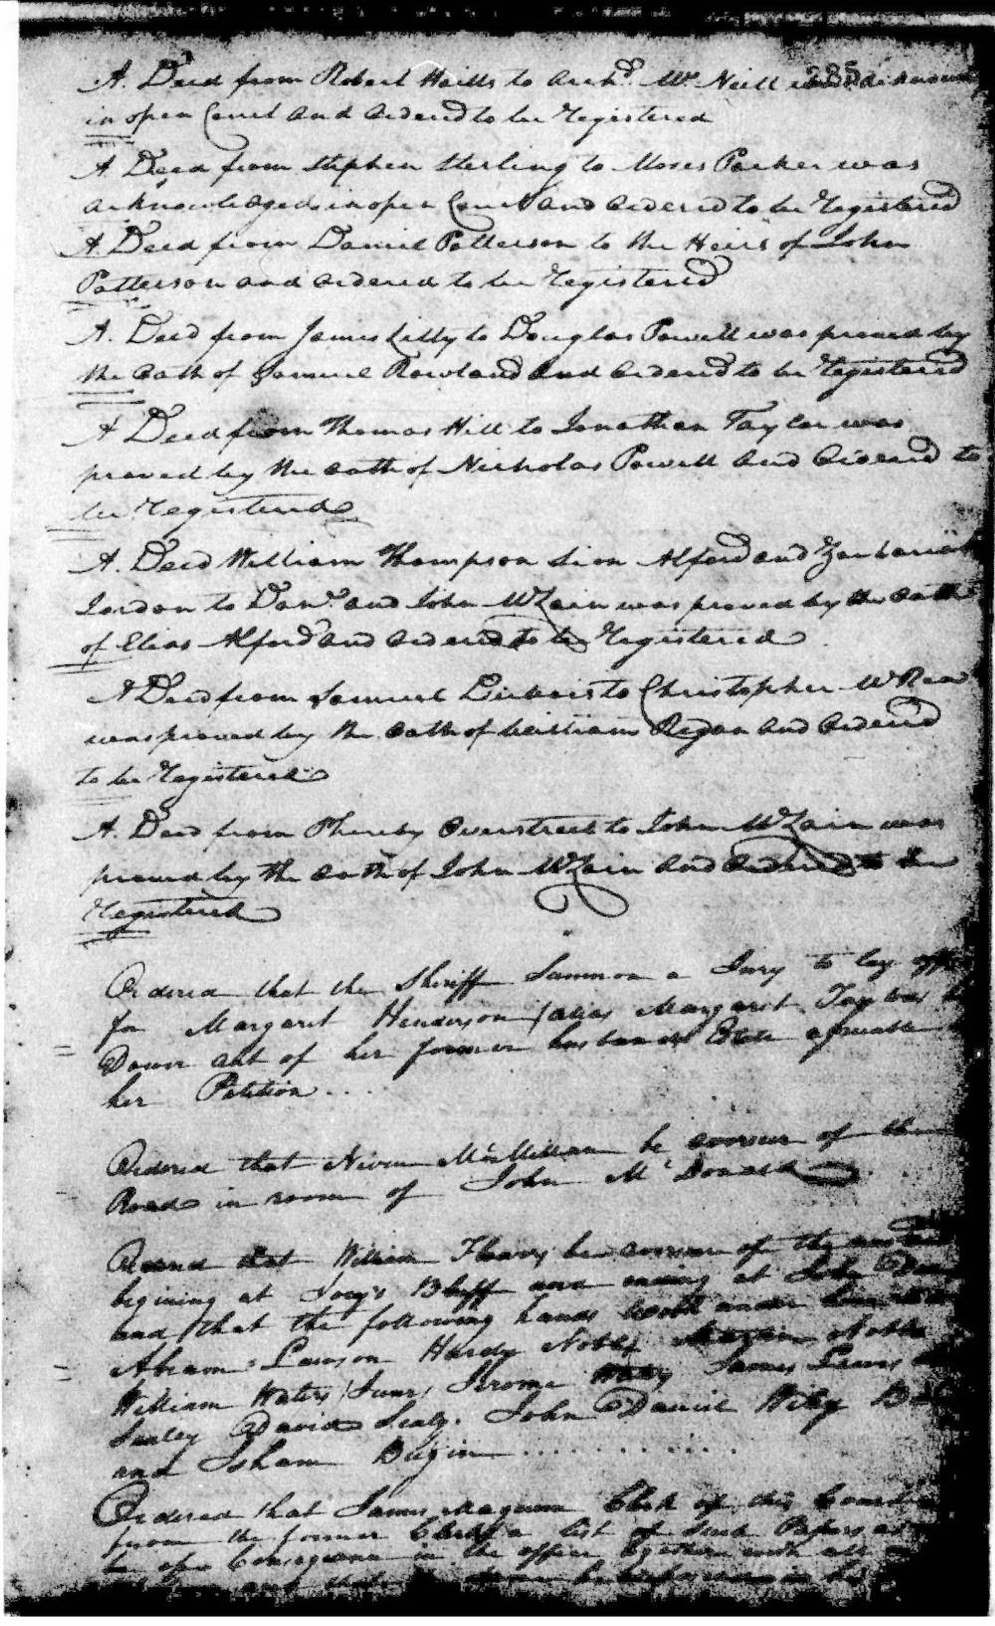 285
A. Deed from Robert Hails to Archd. Mc. Neill was
in open Court and ordered to be Registered
A Deed from Stephen Sterling to Moses Parker was
acknowledged in open Court and ordered to be Registered
A. Deed from Daniel Patterson to the Heirs of John
Patterson and ordered to be Registered
A. Deed from James Lilly to Douglas Powell was proved by
the Oath of Samuel Rowland and ordered to be Registered
A Deed from Thomas Hill to Jonathan Taylor was
proved by the oath of Nicholas Powell and ordered to
be Registered
A. Deed William Thompson Sion Alford and Zachariah
Jordon to Danl. and John McLain was proved by the Oath
of Elias Alford and ordered to be Registered
A Deed from Samuel to Christopher
was proved by the Oath of William Regan and ordered
to be Registered
A. Deed from Phereby Overstreet to John McLain was
proved by the Oath of John McLain and ordered to be
Registered
Ordered that the Sheriff Summon a Jury to lay off
for Margaret Henderson (alias Margaret Taylor
Dower out of her former husbands Estate agreeable
her Petition ...
Ordered that Niven McMillan be overseer of the
Road in room of John Mc Donald
Ordered that William be overseer of the
begining at Joey's Bluff and ending at John
and that the following hands work under
Abram Lawson Hardy Nobles Nobles
William Waters Junr, Jerome James
Sealey David Sealy. John Daniel Wiley
and Isham
Ordered that James Clerk of this Court
from the former Clerk a list of such Papers as
in the office together with all